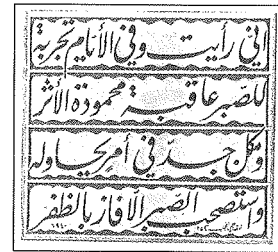 اني رأيت وفي الأيام تجربة
للصبر عاقبة محمودة الأثر
وكل جد في أمر يحاوله
واستصحب الصبر الا فاز بالظفر